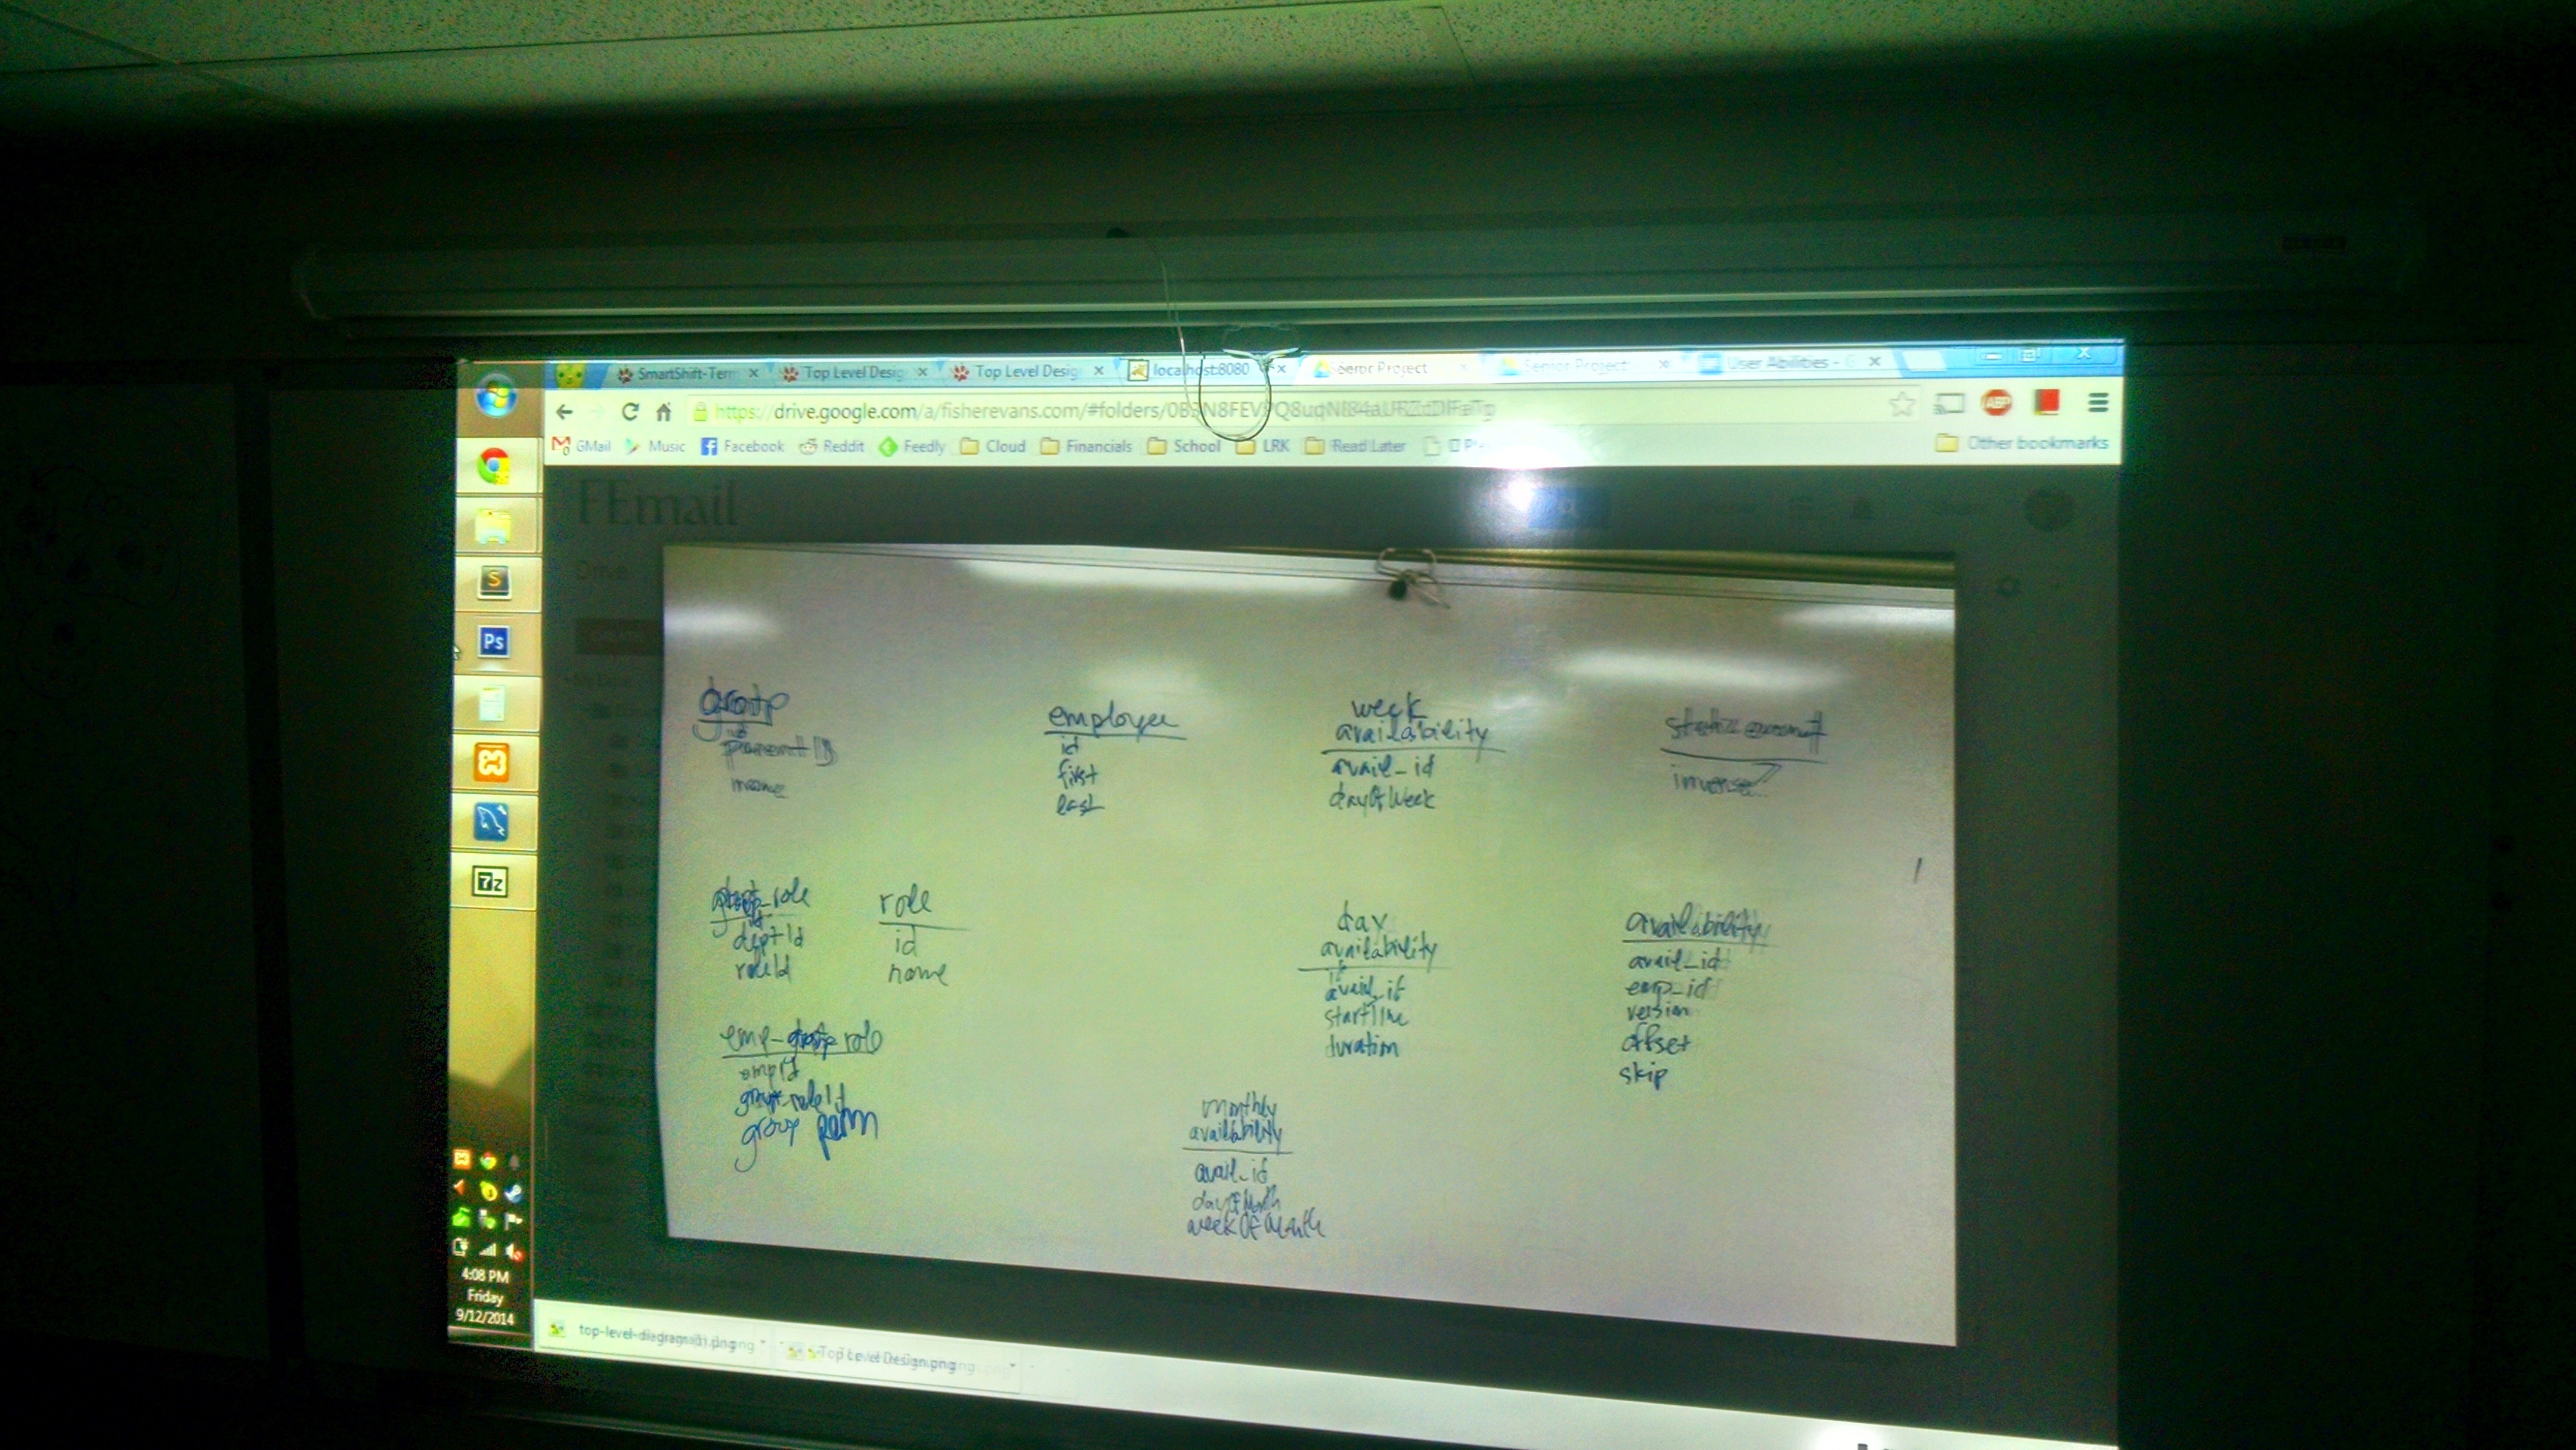 SmartShift-Term
Top Level Desig
Top Level Desig
localhost:8080
Senior Project
Senior Project
User Abilities - G
https://drive.google.com/a/fisherevans.com/#folders/
GMail
Music
Facebook
Reddit
Feedly
Cloud
Financials
School
LRK
Read Later
Other bookmarks
FEmail
Drive
group
id
parentID
name
employee
id
first
last
week
availability
avail_id
dayOfWeek
inverse
group_role
id
deptId
roleId
role
id
name
day
availability
avail_id
startTime
duration
availability
avail_id
emp_id
version
offset
skip
emp_group role
empId
group_roleId
group perm
monthly
availability
avail_id
dayOfMonth
weekOfMonth
Ps
S
7z
4:08 PM
Friday
9/12/2014
top-level-diagram(3).png
Top Level Design.png